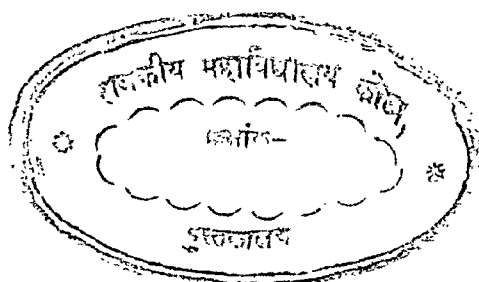 राजकीय महाविद्यालय कोटा,
क्रमांक–
पुस्तकालय